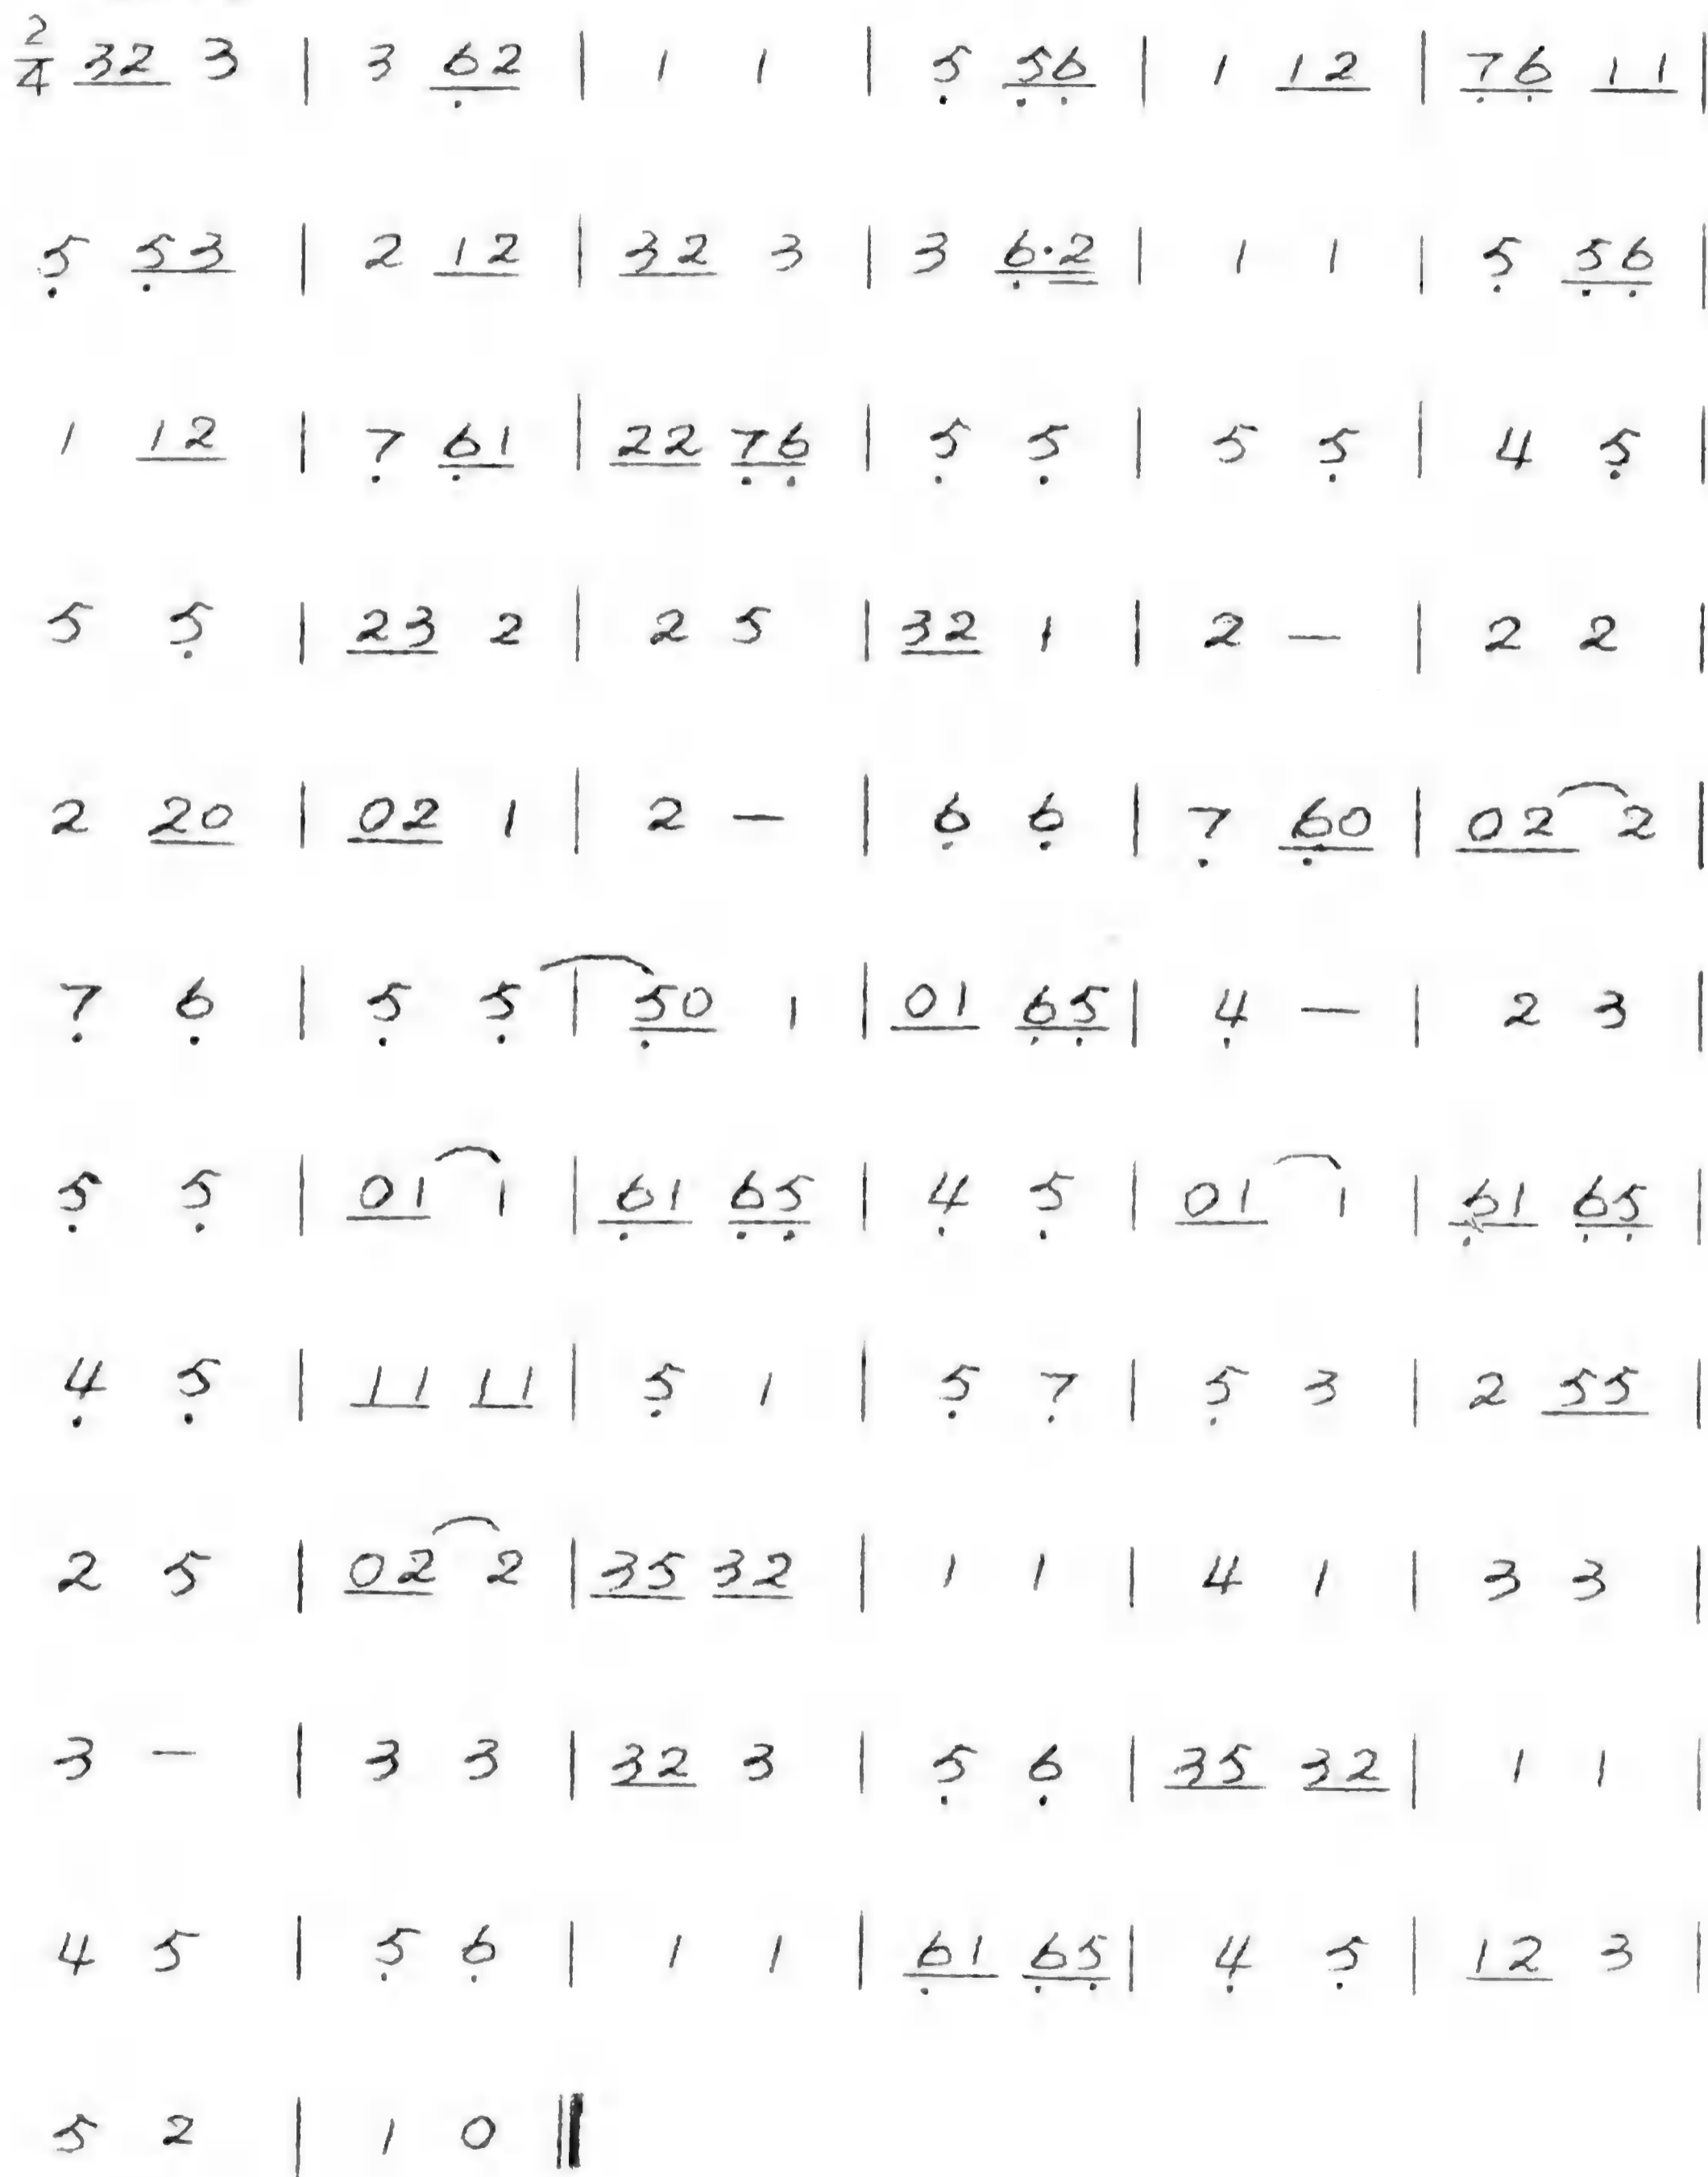 2/4 32 3 | 3 6̣2 | 1 1 | 5̣ 5̣6̣ | 1 12 | 7̣6̣ 11 |
5̣ 5̣3 | 2 12 | 32 3 | 3 6̣·2 | 1 1 | 5̣ 5̣6̣ |
1 12 | 7̣ 6̣1 | 22 7̣6̣ | 5̣ 5̣ | 5 5̣ | 4 5̣ |
5 5̣ | 23 2 | 2 5 | 32 1 | 2 — | 2 2 |
2 20 | 02 1 | 2 — | 6̣ 6̣ | 7̣ 6̣0 | 02 2 |
7̣ 6̣ | 5̣ 5̣ | 5̣0 1 | 01 6̣5̣ | 4̣ — | 2 3 |
5̣ 5̣ | 01 1 | 6̣1 6̣5̣ | 4̣ 5̣ | 01 1 | 6̣1 6̣5̣ |
4̣ 5̣ | 11 11 | 5̣ 1 | 5̣ 7̣ | 5̣ 3 | 2 55 |
2 5 | 02 2 | 35 32 | 1 1 | 4 1 | 3 3 |
3 — | 3 3 | 32 3 | 5̣ 6̣ | 35 32 | 1 1 |
4 5 | 5̣ 6̣ | 1 1 | 6̣1 6̣5̣ | 4̣ 5̣ | 12 3 |
5 2 | 1 0 ‖